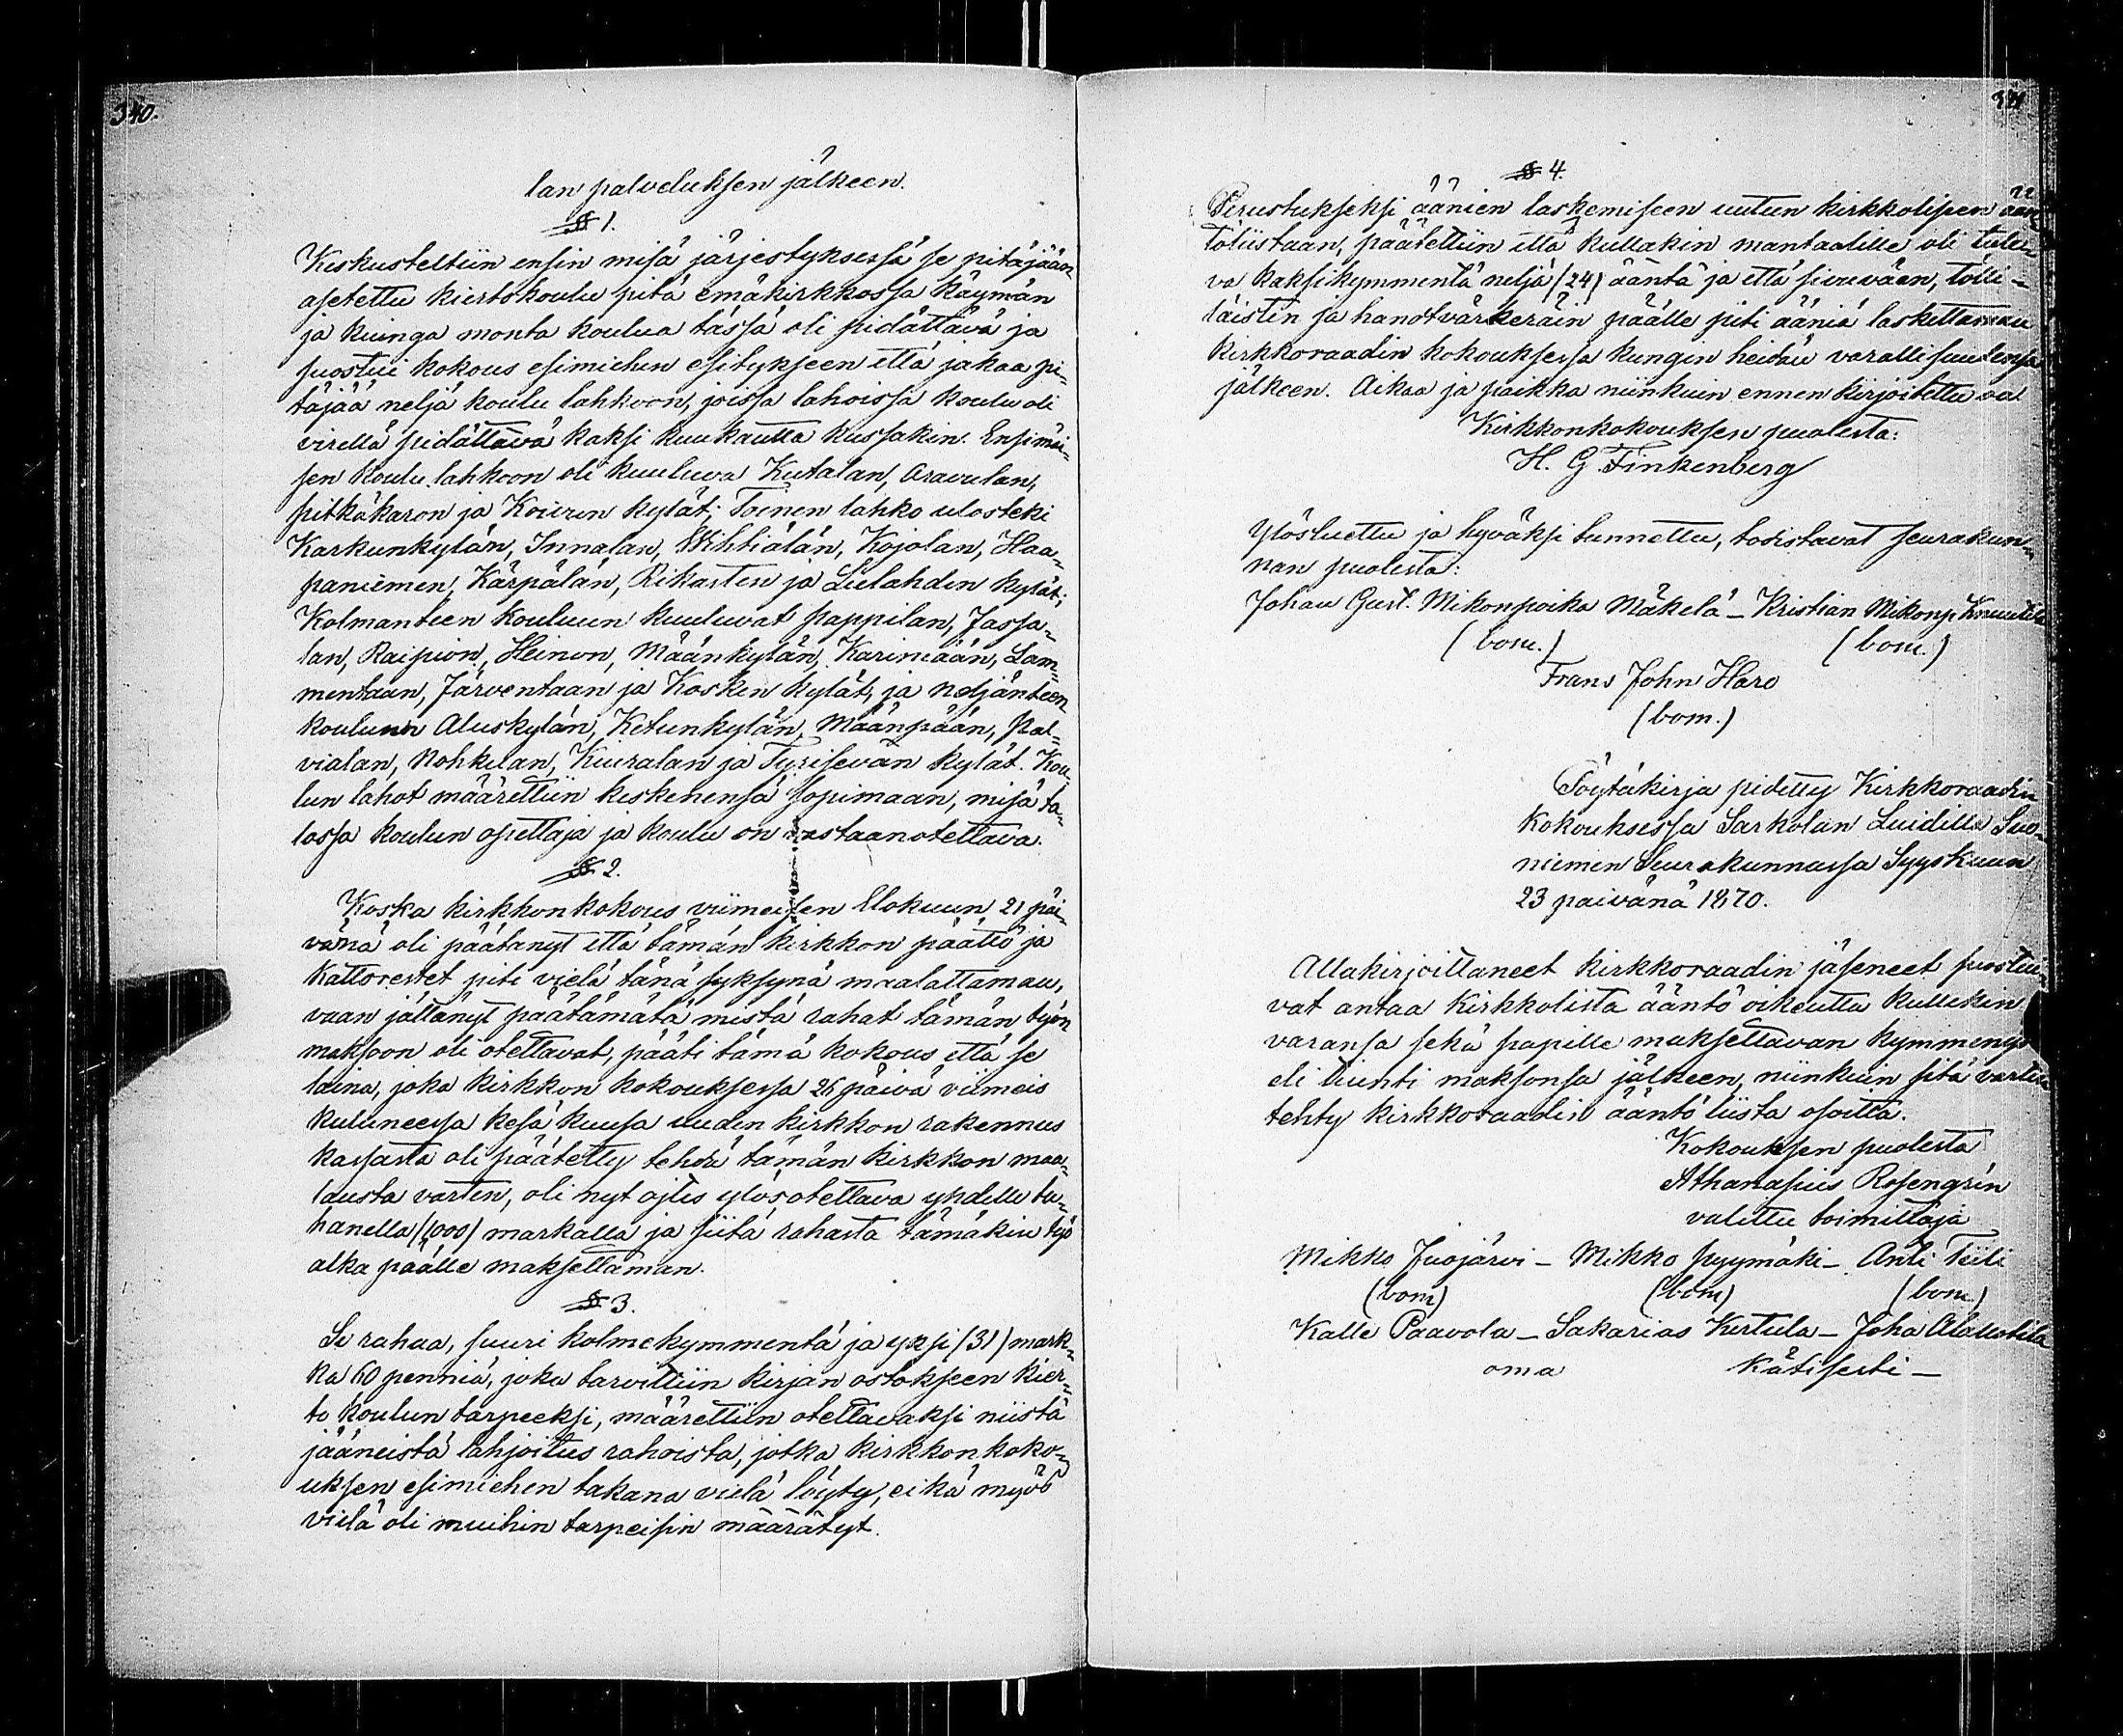 340.
lan palveluksen jälkeen.
§ 1.
Keskusteltiin ensin misä järjestyksessä se pitäjään
asetettu kiertokoulu pitä emäkirkkossa käymän
ja kuinga monta koulua tässä oli pidättävä ja
suostui kokous esimiehen esitykseen että jakaa pi-
täjää neljä koulu lahkoon, joissa lahoissa koulu oli
virellä pidättävä kaksi kuukautta kussakin. Ensimäi-
sen koulu lahkoon oli kuuluva Kutalan, Aravulan,
pitkäkaron ja Koivun kylät; Toinen lahko ulosteki
Karkunkylän, Innalan, Wihtiälän, Kojolan, Haa-
paniemen, Kärpälän, Rikasten ja Lielahden kylät;
Kolmanteen kouluun kuuluvat pappilan, Jassa-
lan, Raipion, Heinon, Määnkylän, Karimään, Lam-
mentaan, Järventaan ja Kosken kylät, ja neljänteen
kouluun Aluskylän, Ketunkylän, Määnpään, Pal-
vialan, Nohkelan, Kiuralan ja Tyrisevän kylät. Kou-
lun lahot määrettiin keskenensä sopimaan, misä ta-
lossa koulun opettaja ja koulu on vastaanotettava.
§ 2.
Koska kirkkonkokous viimeisen Elokuun 21 päi-
vänä oli päätänyt että tämän kirkkon päätiö ja
kattorestet piti vielä tänä syksynä maalattaman,
vaan jättänyt päätämätä mistä rahat tämän työn
maksoon oli otettavat, pääti tämä kokous että se
laina, joka kirkkon kokouksessa 26 päivä viimeis
kuluneessa kesä kuusa uuden kirkkon rakennus
kassasta oli päätetty tehdä tämän kirkkon maa-
lausta varten, oli nyt ojtis ylösotettava yhdellä tu-
hanella (1000) markalla ja siitä rahasta tämäkin työ
alka päälle maksettaman.
§ 3.
Se rahaa, suuri kolmekymmentä ja yksi (31) mark-
ka 60 penniä, joka tarvittiin kirjan ostokseen kier-
to koulun tarpeeksi, määrettiin otettavaksi niistä
jääneistä lahjoitus rahoista, jotka kirkkonkoko-
uksen esimiehen takana vielä löyty, eikä myös
vielä oli muihin tarpeisin määrätyt.
§ 4.
Perustukseksi äänien laskemiseen uuteen kirkkolisen ään-
töliistaan, päätettiin että kullakin mantaalille oli tule-
va kaksikymmentä neljä (24) ääntä ja että sivuväen, tölli-
läisten ja handtvärkeräin päälle piti ääniä laskettaman
kirkkoraadin kokouksessa kungin heidän varallisuutensa
jälkeen. Aikaa ja paikka niinkuin ennen kirjoitettu on
Kirkkonkokouksen puolesta:
H. G. Finkenberg
Ylösluettu ja hyväksi tunnettu, todistavat seurakun-
nan puolesta:
Johan Gust. Mikonpoika Mäkelä - Kristian Mikonp. Knuutila
(bom.) (bom.)
Frans John Haro
(bom.)
Pöytäkirja pidetty Kirkkoraadin
kokouksessa Sarkolan Luidilla Suo-
niemen Seurakunnassa Syyskuun
23 päivänä 1870.
Allakirjoittaneet kirkkoraadin jäseneet suostui-
vat antaa kirkkolista ääntö oikeutta kullekin
varansa sekä papille maksettavan kymmenys
eli tiunti maksonsa jälkeen, niinkuin sitä varten
tehty kirkkoraadin ääntö liista osoitta.
Kokouksen puolesta
Athanasius Rosengrén
valittu toimittaja
Mikko Juojärvi - Mikko pyymäki - Anti Tiili
(bom) (bom) (bom)
Kalle Paavola - Sakarias Kertula - Joha Alauotila
oma kätisesti -